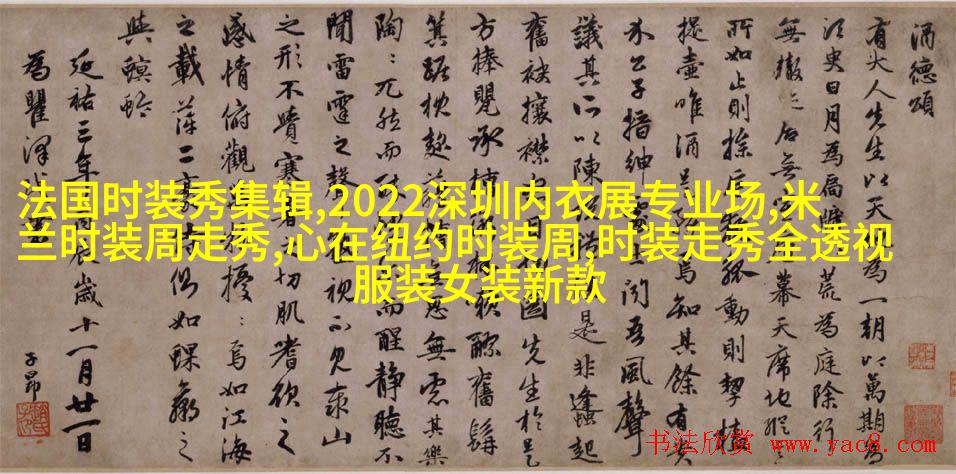 酒德頌
有大人先生以天地為一朝以萬期為
須臾日月為扃牖八荒為庭除行
無轍迹居無室幕天席地縱
所如止則操觚動則挈榼
提壺唯酒是焉知其餘有貴
介公子搢紳士聞吾風聲
議其所以陳是非蜂起
奮袂攘襟目先生於是
方捧甖承醪奮髯
箕踞枕麴無慮其樂
陶:兀然而而醒靜聽不
聞雷霆之聲視不見泰山
之形不覺寒暑之切肌嗜欲之
感情俯觀擾:焉如江海
之載萍二豪侍側如蜾蠃之
與螟蛉
延祐三年歲十一月廿一日
為瞿澤
子昂
法国时装秀集辑,2022深圳内衣展专业场,米
兰时装周走秀,心在纽约时装周,时装走秀全透视
服装女装新款
书法欣赏 www.yac8.com